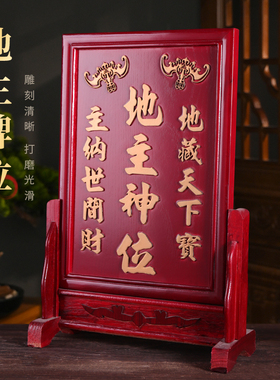 地主牌位
雕刻清晰 打磨光滑
地藏天下寶
地主神位
主納世間財